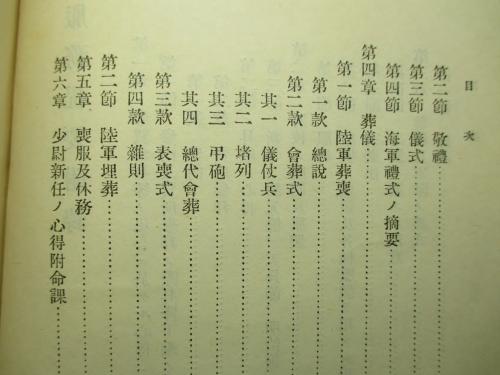 目次
第二節 敬禮
第三節 儀式
第四節 海軍禮式ノ摘要
第四章 葬儀
第一節 陸軍葬喪
第一款 總說
第二款 會葬式
其一 儀仗兵
其二 堵列
其三 弔砲
其四 總代會葬
第三款 表喪式
第四款 雜則
第二節 陸軍埋葬
第五章 喪服及休務
第六章 少尉新任ノ心得附命課